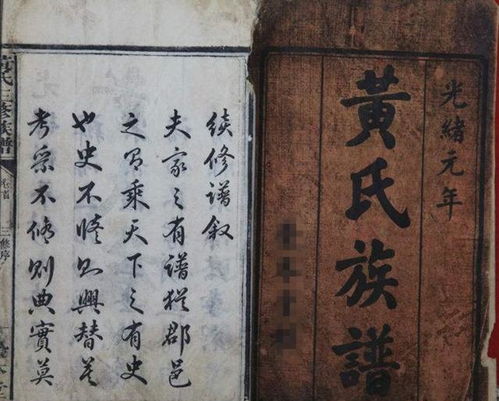 光緒元年
黃氏族譜
續修譜叙
夫家之有譜猶郡邑
之有乘天下之有史
也史不修則興替莫
考乘不修則典實莫
黃氏三修族譜
卷首
三修序